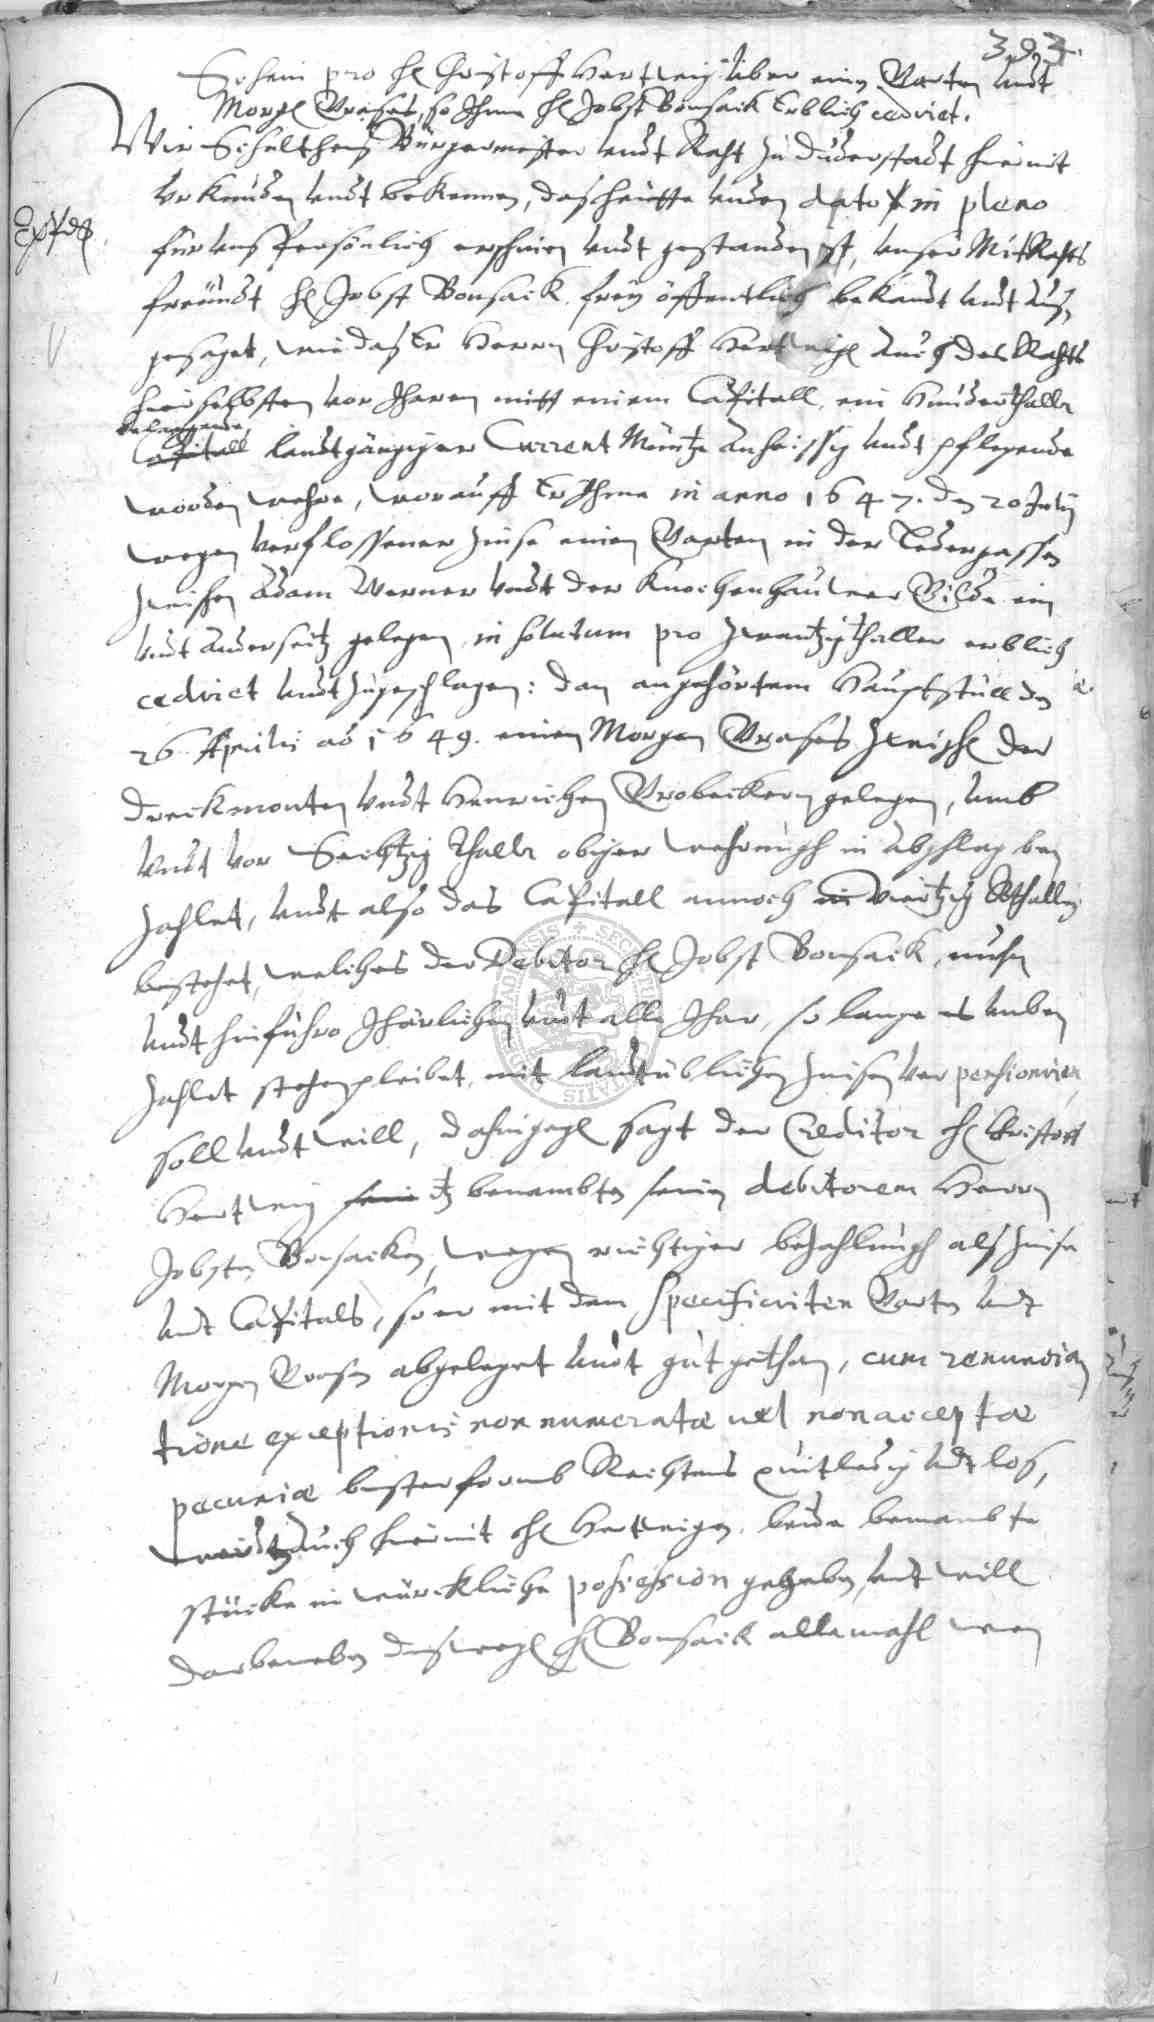 392.
Schein pro H. Christoff Hertwig über einen Garten undt
Morgen Grases, so Ihme H. Jobst Bonsack Erblich cediret.
Wir Schultheis Bürgermeister undt Raht zu Duderstadt hiermit
Urkunden undt bekennen, das heutte unden dato in pleno
Expds.
für uns Persönlich erschinen undt gestanden ist, unser MitRahts
freundt H. Jobst Bonsack frey öffentlich bekandt undt aus
gesaget, wie das Er Herrn Christoff Hertwigen auch des Rahts
hierselbsten vor Iharen mitt einem Capitall, ein Hundertthaller
belangende,
Capitall landtgängiger Current Müntze anheissig undt pflegende
worden wehre, worauff Er Ihme in anno 1647. den 20 July
wegen verflossener Zinse einen Garten in der Ledergassen
Zwischen Adam Werner undt der Knochenhauwer Gilde ein
undt anderseitz gelegen in solutum pro Zwantzigthaller erblich
cediret undt Zugeschlagen: dan angehörtem Hauptstuell den
26 Aprilis ao 1649. einen Morgen Grases Zwischen der
Dreckmonten undt Henrichen Grobeckern gelegen, umb
undt vor Sechtzig Thaller obiger wehrungh in abschlag be
Zahlet, undt also das Capitall annoch in Viertzig Rthallern
bestehet, welches der Debitor H. Jobst Bonsack, nuhn
undt hinführo Jhärlichen undt alle Ihar, so lange es unbe
Zahlet stehen pleibet, mit landtüblichen Zinsen ver pensioniren
soll undt will, dahingegen sagt der Creditor H. Christoff
Hertwig itz benambten seinen debitorem Herrn
Jobsten Bonsacken, wegen richtiger bezahlungh als Zinse
undt Capitals, so er mit dem specificirten Garten undt
Morgen Grasen abgeleget undt gut gethan, cum renuncia
tione exceptionis non numeratæ vel non acceptæ
pecuniæ bester formb Rechtens quitledig undt los,
auch hiermit H. Hertwigen beide benambte
stücke in würckliche possession gegeben, undt will
darbeneben H. Bonsack allemahl